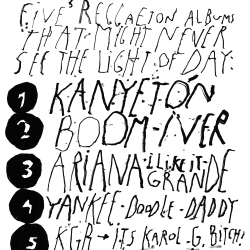 FIVE REGGAETON ALBUMS
THAT MIGHT NEVER
SEE THE LIGHT OF DAY:
1 KANYETÓN
2 BOOM-IVER
3 ARIANA-I LIKE IT-GRANDE
4 YANKEE-DOODLE-DADDY
5 KGB → ITS KAROL G, BITCH.